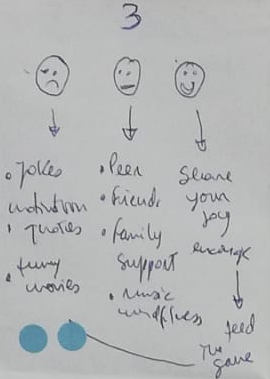 3
• Jokes
motivation
• quotes
• funny
movies
• Peer
• friends
• family
support
• music
mindfulness
Share
your
joy
encourage
feed
The
game